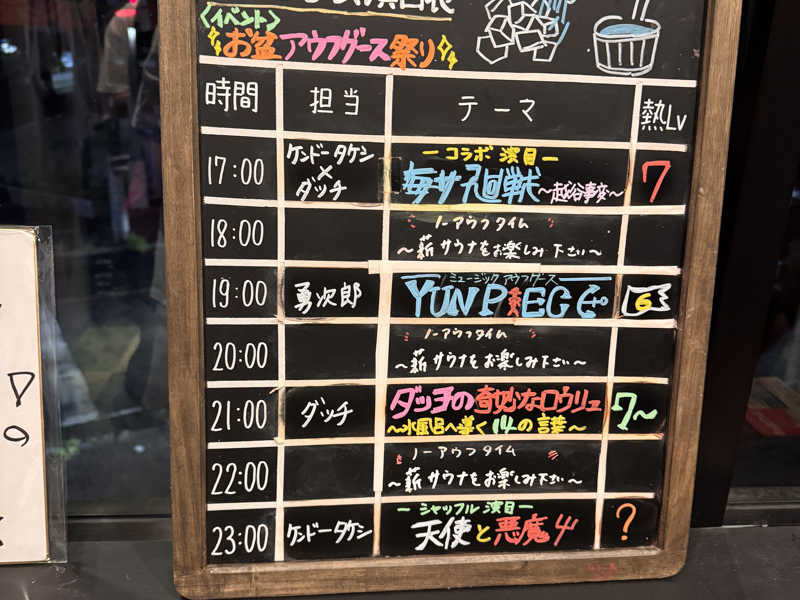 〈イベント〉
お盆アウフグース祭り
時間 担当 テーマ 熱Lv
17:00 ケンドータケシ×ダッチ ーコラボ 演目ー
毎サ回戦 〜越谷事変〜 7
18:00 ノーアウフタイム
〜薪サウナをお楽しみ下さい〜
19:00 勇次郎 ミュージックアウフグース
YUN P EGE 6
20:00 ノーアウフタイム
〜薪サウナをお楽しみ下さい〜
21:00 ダッチ ダッチの奇妙なロウリュ 7〜
〜水風呂へ導く14の言葉〜
22:00 ノーアウフタイム
〜薪サウナをお楽しみ下さい〜
23:00 ケンドータケシ ーシャッフル演目ー
天使と悪魔 ?